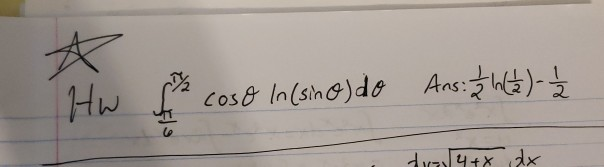 Hw ∫_{π/6}^{π/2} cosθ ln(sinθ)dθ Ans: 1/2 ln(1/2) - 1/2
dv = √4+x dx